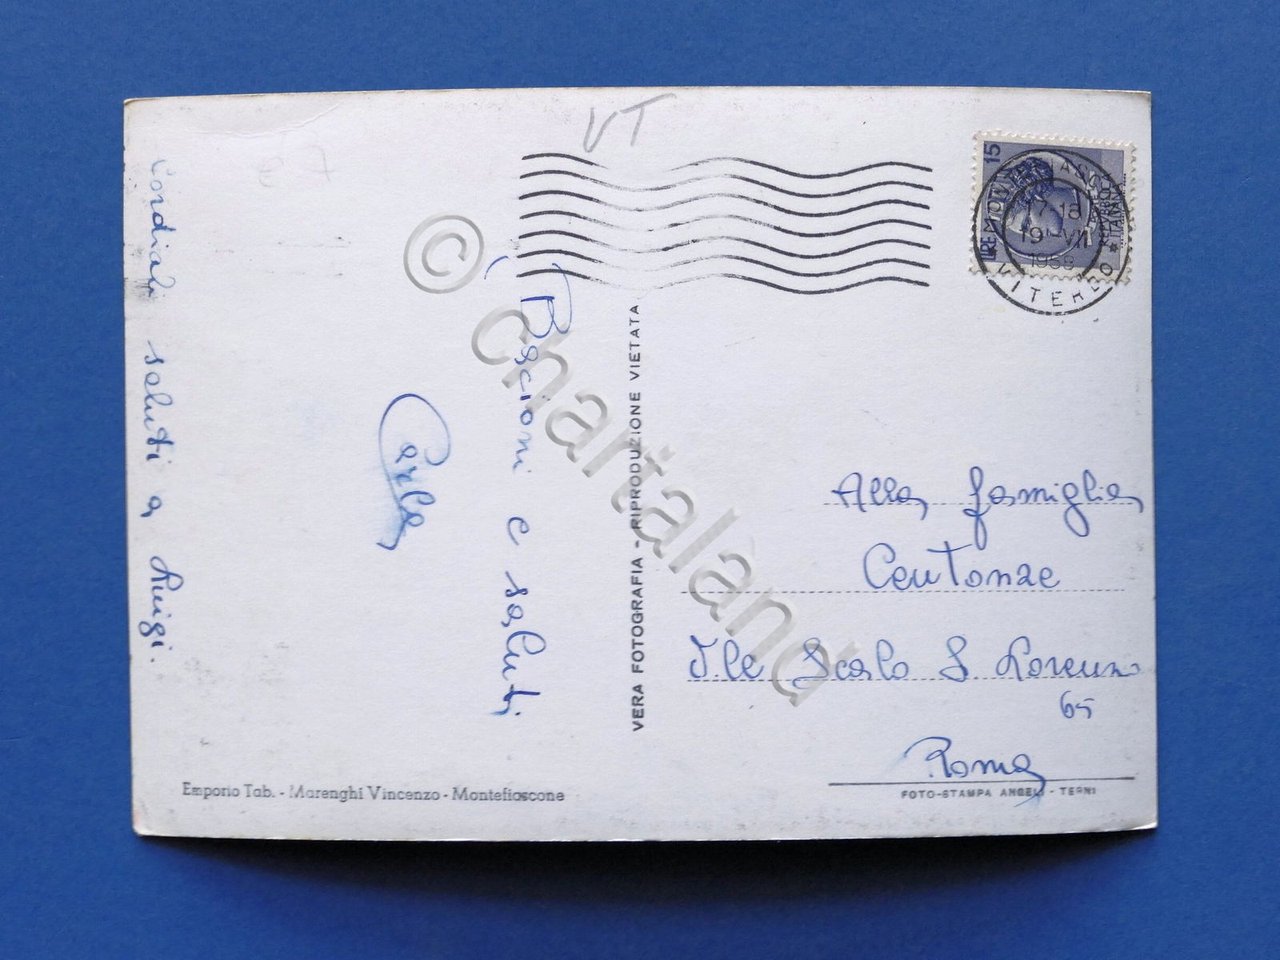 VT
LIRE 15
MONTEFIASCONE
18
19 VII
VITERBO
Bacioni e saluti
Carla
Cordiali saluti a Luigi.
VERA FOTOGRAFIA - RIPRODUZIONE VIETATA
Alla famiglia
Centonze
P.le Scalo S. Lorenzo
65
Roma
Emporio Tab. - Marenghi Vincenzo - Montefiascone
FOTO-STAMPA ANGELI - TERNI
© chartaland